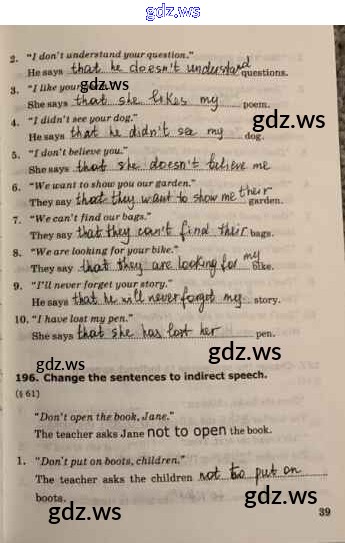 gdz.ws
2. "I don't understand your question."
He says that he doesn't understand questions.
3. "I like your
She says that she likes my poem.
gdz.ws
4. "I didn't see your dog."
He says that he didn't see my dog.
gdz.ws
5. "I don't believe you."
She says that she doesn't believe me
6. "We want to show you our garden."
They say that they want to show me their garden.
7. "We can't find our bags."
They say that they can't find their bags.
8. "We are looking for your bike."
They say that they are looking for my bike.
9. "I'll never forget your story."
He says that he will never forget my story.
10. "I have lost my pen."
She says that she has lost her pen.
gdz.ws
gdz.ws
196. Change the sentences to indirect speech.
(§ 61)
"Don't open the book, Jane."
The teacher asks Jane not to open the book.
gdz.ws
1. "Don't put on boots, children."
The teacher asks the children not to put on
boots.
gdz.ws
gdz.ws
39
gdz.ws